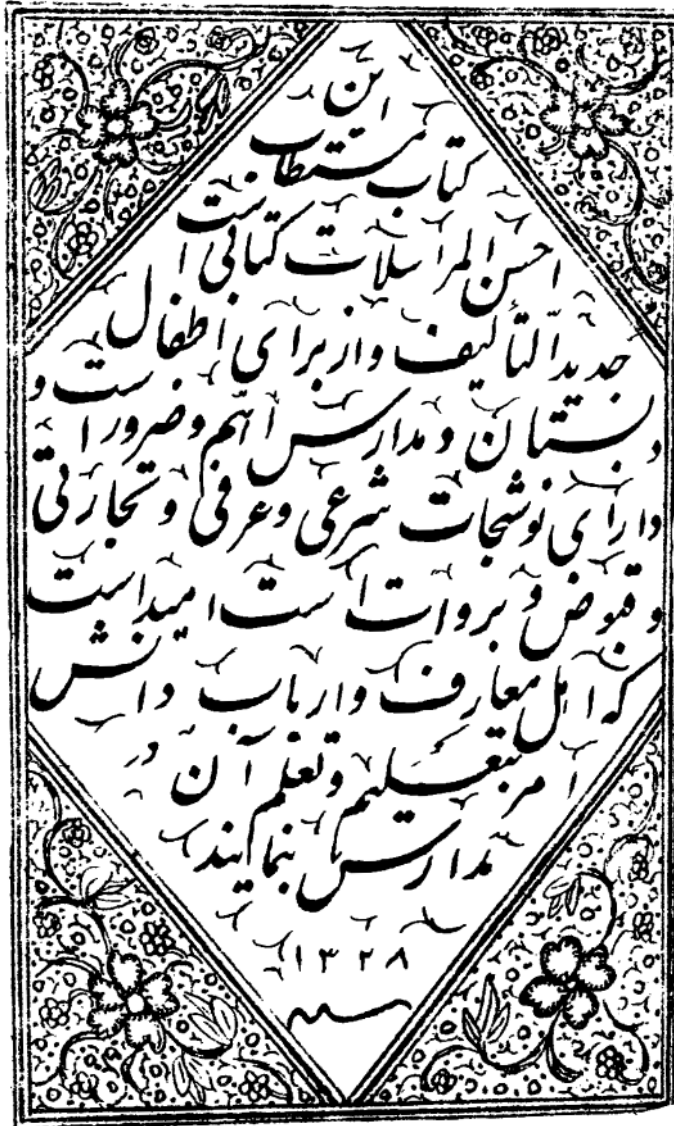 این
کتاب مستطاب
احسن المراسلات کتابی است
جدید التألیف و از برای اطفال
دبستان و مدارس اهم و ضرور است و
دارای نوشتجات شرعی و عرفی و تجارتی
و قبوض و بروات است امید است
که اهل معارف و ارباب دانش
امر بتعلیم و تعلم آن در
مدارس بنمایند
۱۳۲۸